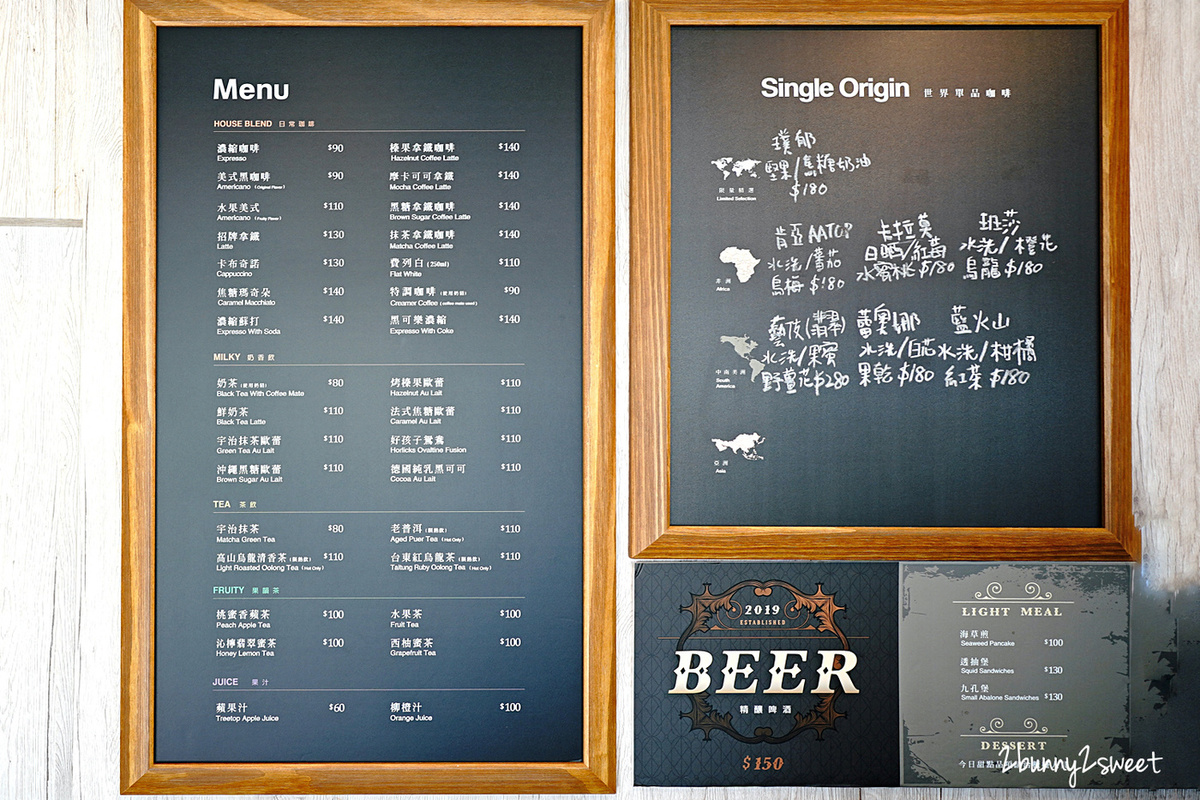 Menu
HOUSE BLEND 日常咖啡
濃縮咖啡 $90
Expresso
美式黑咖啡 $90
Americano (Original Flavor)
水果美式 $110
Americano (Fruity Flavor)
招牌拿鐵 $130
Latte
卡布奇諾 $130
Cappuccino
焦糖瑪奇朵 $140
Caramel Macchiato
濃縮蘇打 $140
Expresso With Soda
榛果拿鐵咖啡 $140
Hazelnut Coffee Latte
摩卡可可拿鐵 $140
Mocha Coffee Latte
黑糖拿鐵咖啡 $140
Brown Sugar Coffee Latte
抹茶拿鐵咖啡 $140
Matcha Coffee Latte
費列白 (250ml) $110
Flat White
特調咖啡 (使用奶精) $90
Creamer Coffee (coffee mate used)
黑可樂濃縮 $140
Expresso With Coke
MILKY 奶香飲
奶茶 (使用奶精) $80
Black Tea With Coffee Mate
鮮奶茶 $110
Black Tea Latte
宇治抹茶歐蕾 $110
Green Tea Au Lait
沖繩黑糖歐蕾 $110
Brown Sugar Au Lait
烤榛果歐蕾 $110
Hazelnut Au Lait
法式焦糖歐蕾 $110
Caramel Au Lait
好孩子鴛鴦 $110
Horlicks Ovaltine Fusion
德國純乳黑可可 $110
Cocoa Au Lait
TEA 茶飲
宇治抹茶 $80
Matcha Green Tea
高山烏龍清香茶 (限熱飲) $110
Light Roasted Oolong Tea (Hot Only)
老普洱 (限熱飲) $110
Aged Puer Tea (Hot Only)
台東紅烏龍茶 (限熱飲) $110
Taitung Ruby Oolong Tea (Hot Only)
FRUITY 果韻茶
桃蜜香蘋茶 $100
Peach Apple Tea
沁檸翡翠蜜茶 $100
Honey Lemon Tea
水果茶 $100
Fruit Tea
西柚蜜茶 $100
Grapefruit Tea
JUICE 果汁
蘋果汁 $60
Treetop Apple Juice
柳橙汁 $100
Orange Juice
Single Origin 世界單品咖啡
限量精選
Limited Selection
璞郁
堅果/焦糖奶油
$180
非洲
Africa
肯亞AATOP
水洗/蕃茄
烏梅 $180
卡拉莫
日曬/紅莓
水蜜桃 $180
班莎
水洗/橙花
烏龍 $180
中南美洲
South
America
藝伎(翡翠)
水洗/果蜜
野薑花 $280
蕾奧娜
水洗/白花
果乾 $180
藍火山
水洗/柑橘
紅茶 $180
亞洲
Asia
2019
ESTABLISHED
BEER
精釀啤酒
$150
LIGHT MEAL
海草煎 $100
Seaweed Pancake
透抽堡 $130
Squid Sandwiches
九孔堡 $130
Small Abalone Sandwiches
DESSERT
今日甜點品
2bunny2sweet